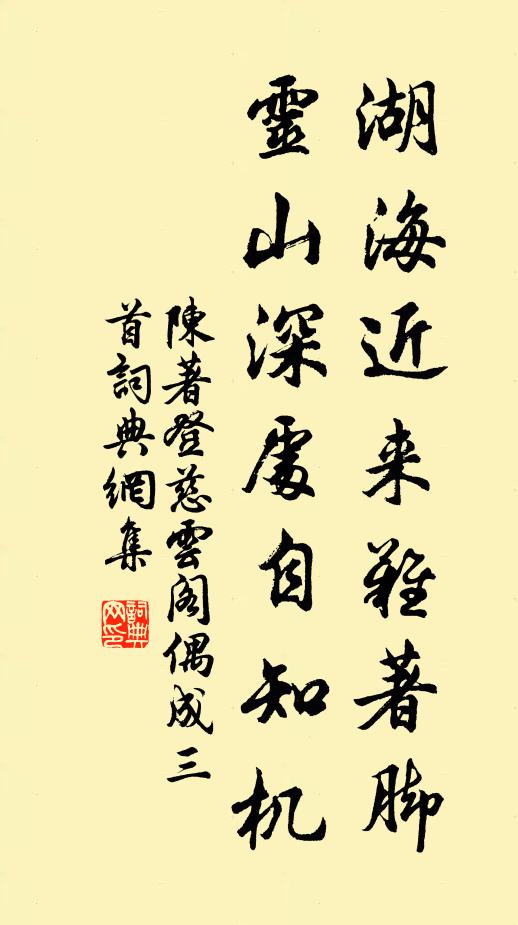 湖海近来難著脚
靈山深處自知机
陳著登慈雲閣偶成三
首詞典網集
詞典
网印